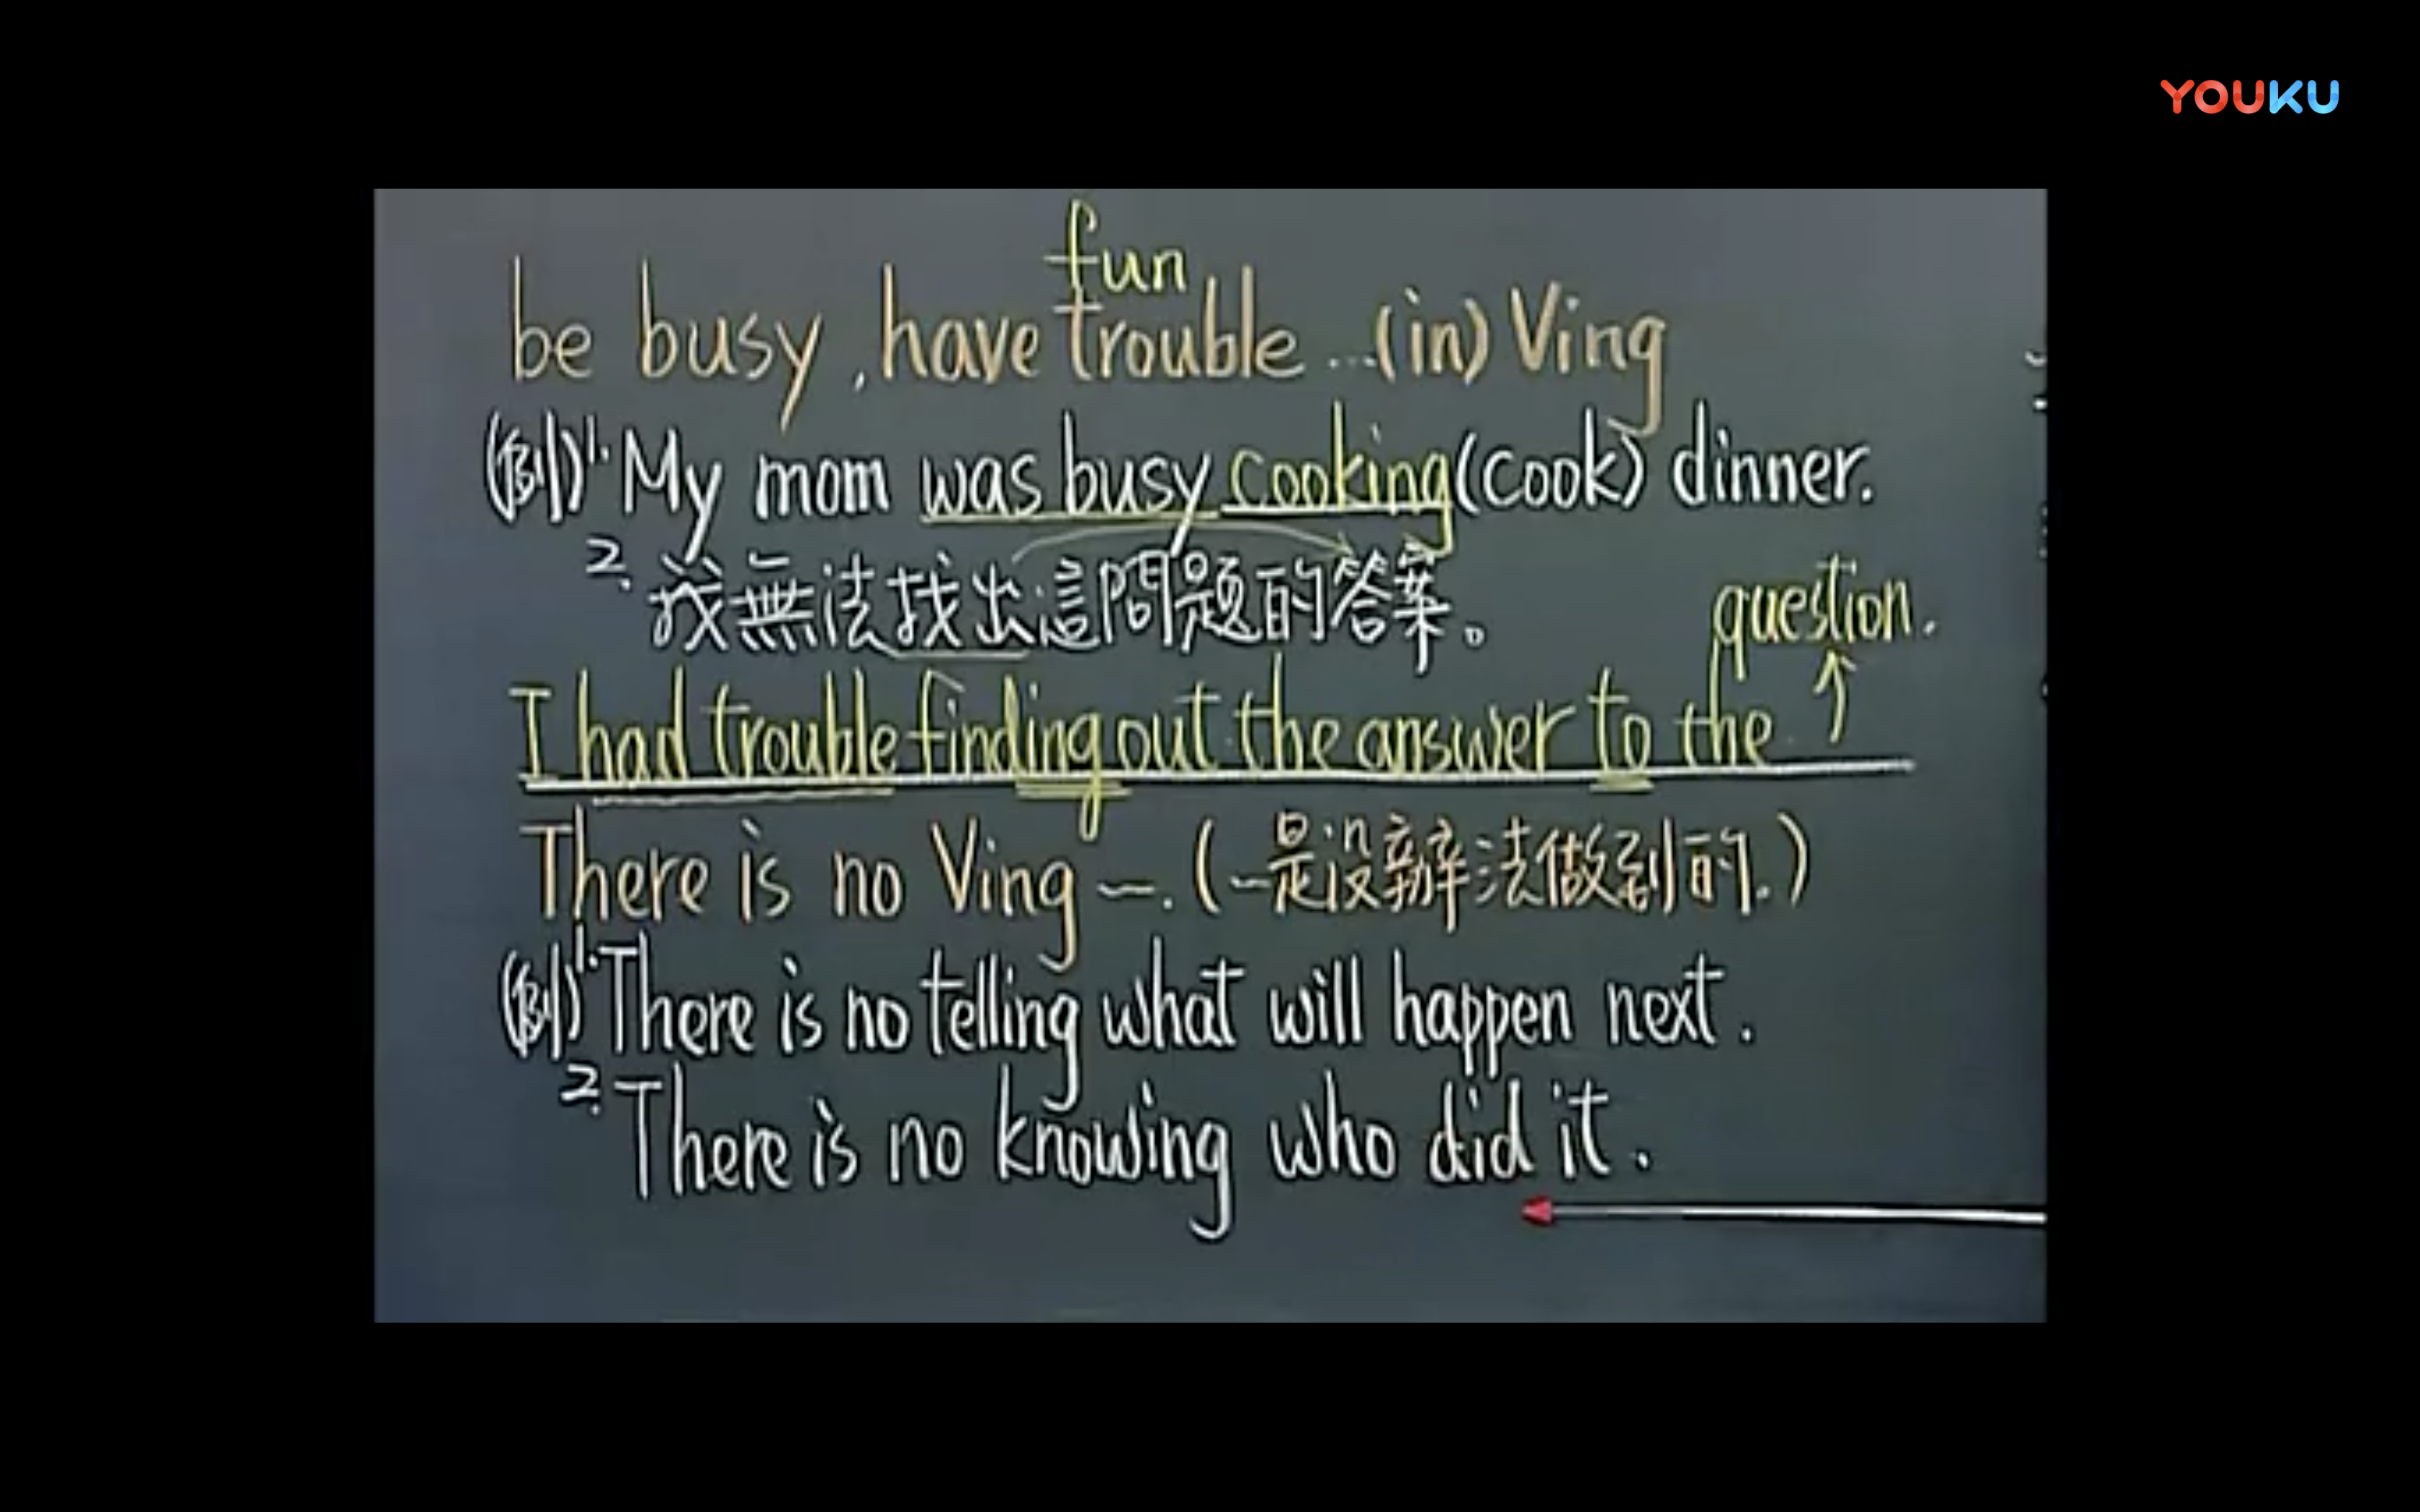 YOUKU
fun
be busy, have trouble ...(in) Ving
(例)1. My mom was busy cooking(cook) dinner.
2. 我無法找出這問題的答案。
question.
I had trouble finding out the answer to the ↑
There is no Ving —. (—是沒辦法做到的.)
(例)1. There is no telling what will happen next.
2. There is no knowing who did it.